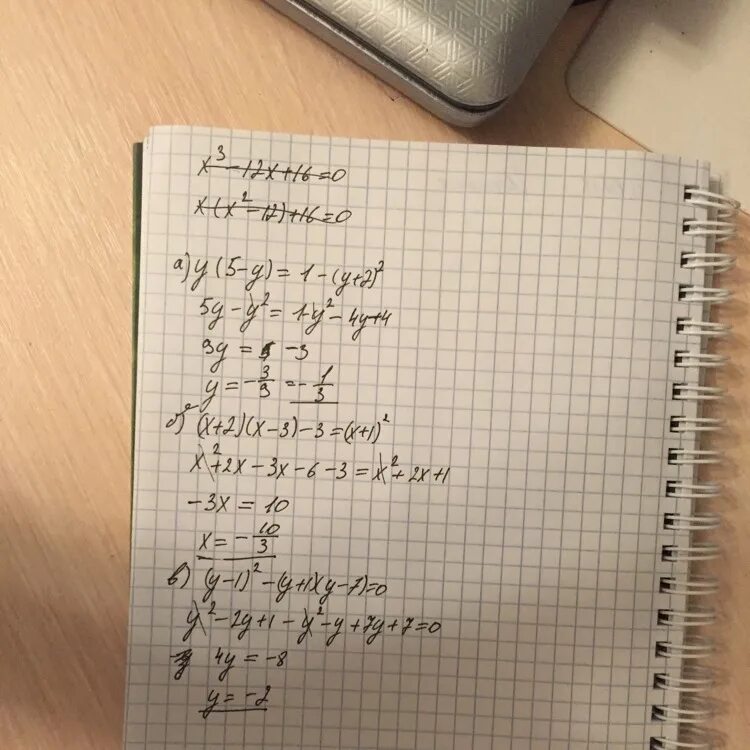 x³ - 12x + 16 = 0
x(x² - 12) + 16 = 0
а) y(5-y) = 1 - (y+2)²
5y - y² = 1 - y² - 4y + 4
9y = -3
y = -3/9 = -1/3
б) (x+2)(x-3) - 3 = (x+1)²
x² + 2x - 3x - 6 - 3 = x² + 2x + 1
-3x = 10
x = -10/3
в) (y-1)² - (y+1)(y-7) = 0
y² - 2y + 1 - y² - y + 7y + 7 = 0
4y = -8
y = -2